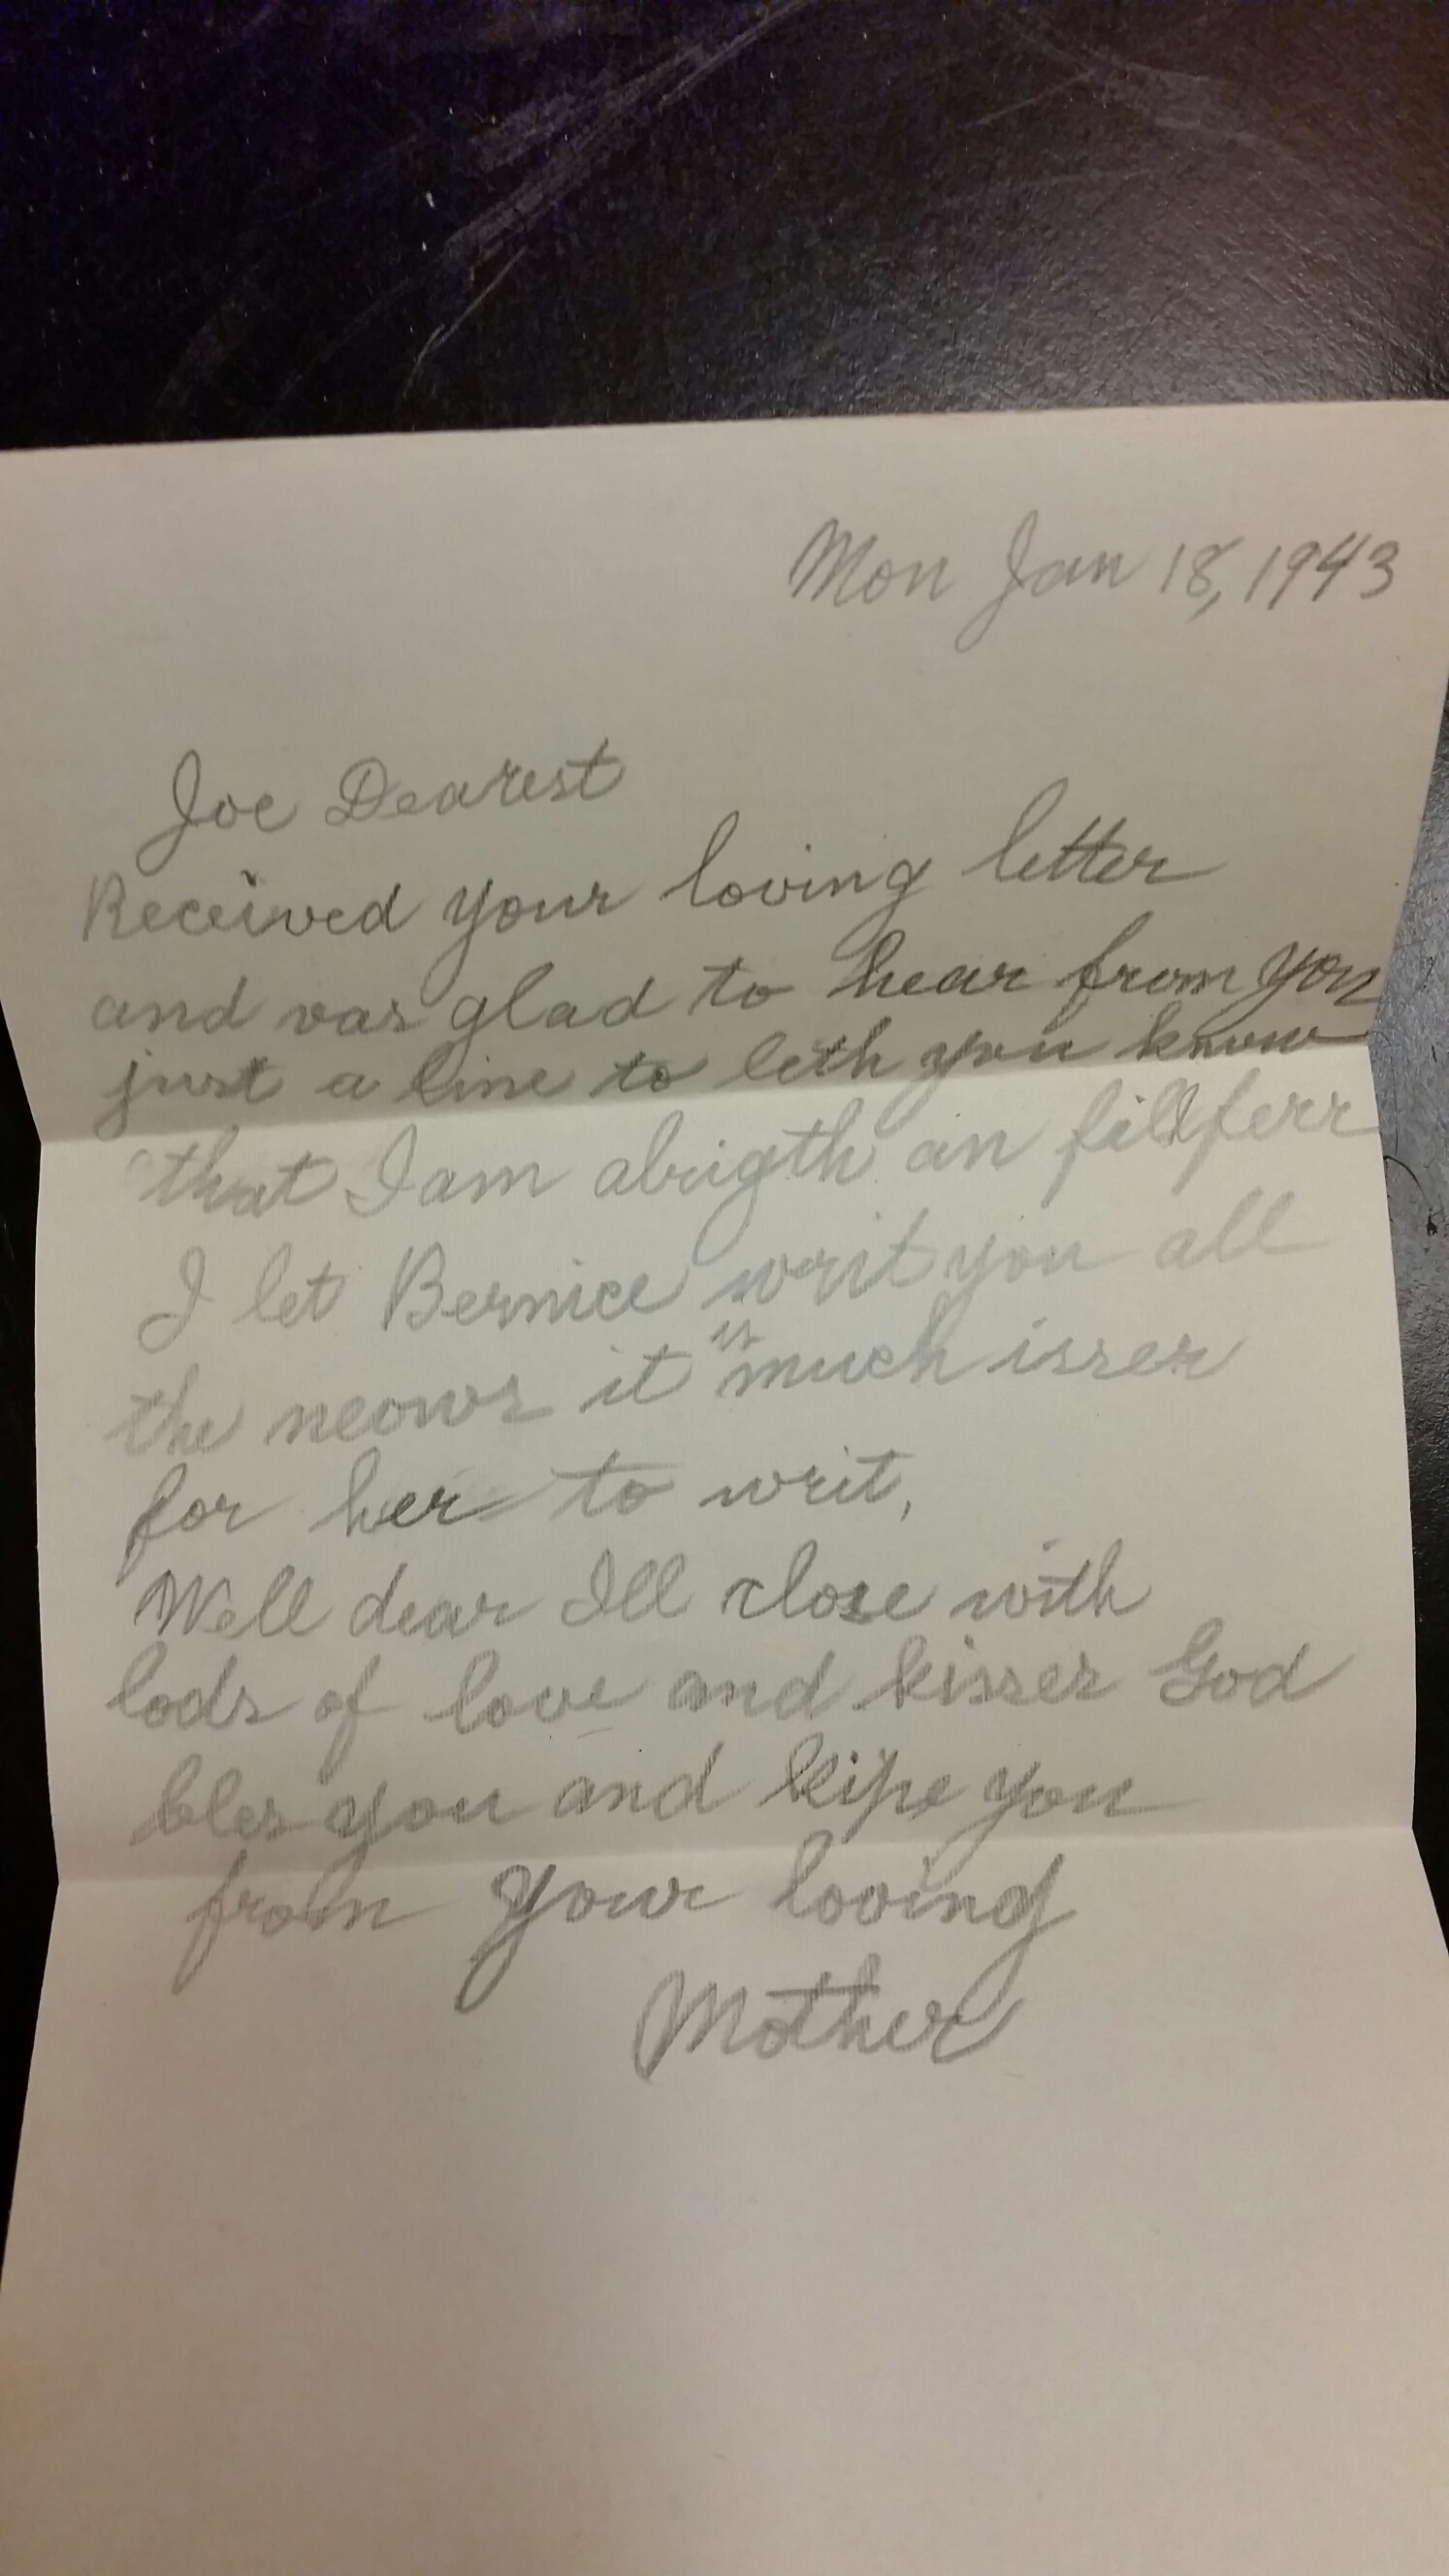 Mon Jan 18, 1943
Joe Dearest
Received your loving letter
and vas glad to hear from you
just a line to leth you know
that I am abrigth an fill ferr
I let Bernice writ you all
the neows it is much isser
for her to writ,
Well dear Ill close with
lods of love and kisses God
bles you and kipe you
from your loving
Mother